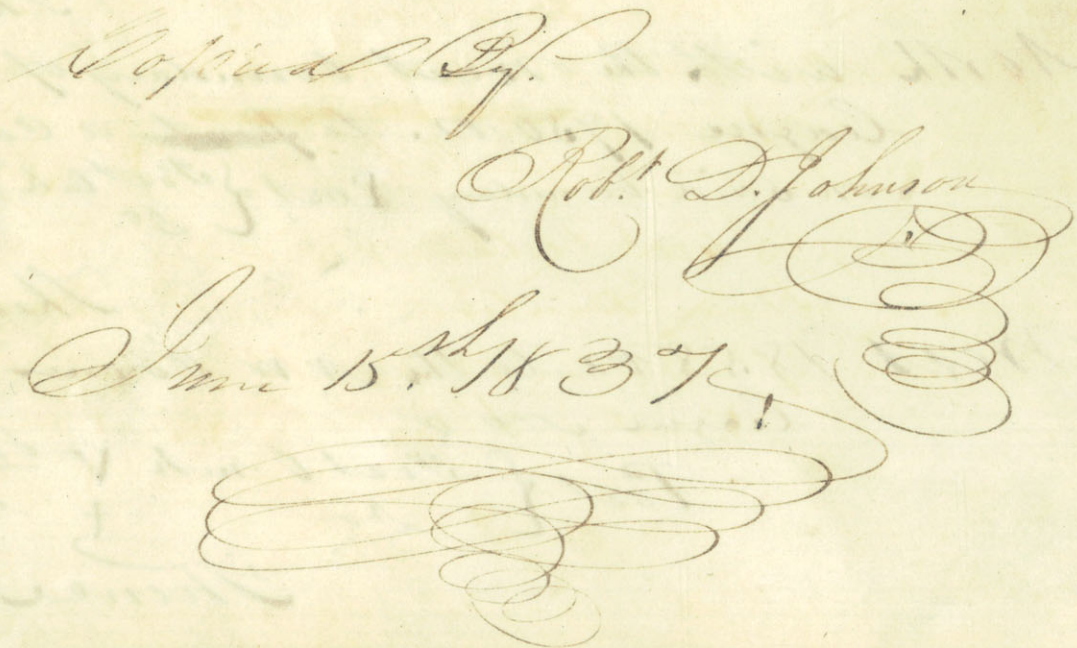 Copied By.
Robt. D. Johnson
June 15th. 1837